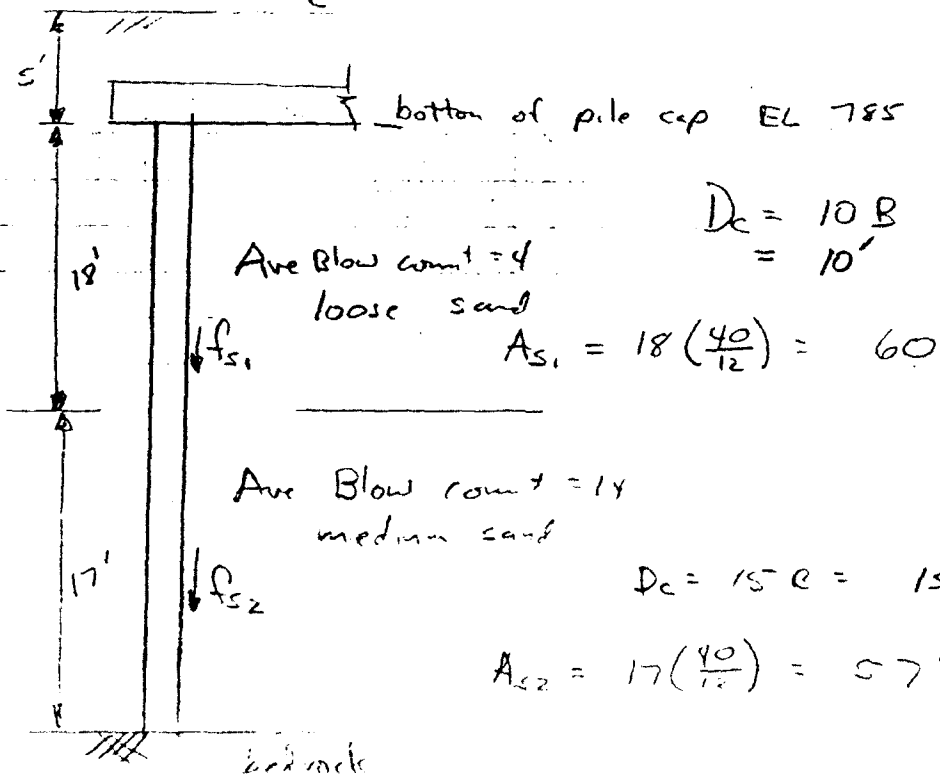 5'
bottom of pile cap EL 785
Dc = 10 B
= 10'
18'
Ave Blow count = 4
loose sand
fs1
As1 = 18 (40/12) = 60
Ave Blow count = 14
medium sand
17'
fs2
Dc = 15 = 15
As2 = 17 (40/12) = 57
bedrock